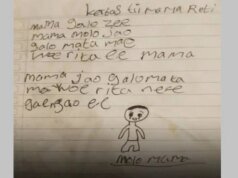 kertas tii mama Roti
mama galo zee
mama molo jao
galo mata mae
woe rita el mama
mama jao galo mata
ma woe rita nese
gae jao el
molo mama